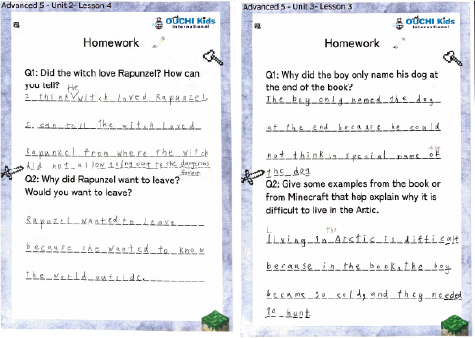 Advanced 5 - Unit 2- Lesson 4
OUCHI Kids
International
Homework
Q1: Did the witch love Rapunzel? How can
you tell?
the
I think witch loved Rapunzel,
I can tell the witch loved
Rapunzel from where the witch
did not allow going out to the dangerous
Q2: Why did Rapunzel want to leave?
Would you want to leave?
Rapuzel wanted to leave
because she wanted to know
the world outside.
Advanced 5 - Unit 3- Lesson 3
OUCHI Kids
International
Homework
Q1: Why did the boy only name his dog at
the end of the book?
The boy only named the dog
at the end because he could
for
not think a special name of
the dog
Q2: Give some examples from the book or
from Minecraft that hep explain why it is
difficult to live in the Artic.
the
Living in Arctic is difficalt
because in the book, the boy
became so cold, and they needed
to hunt